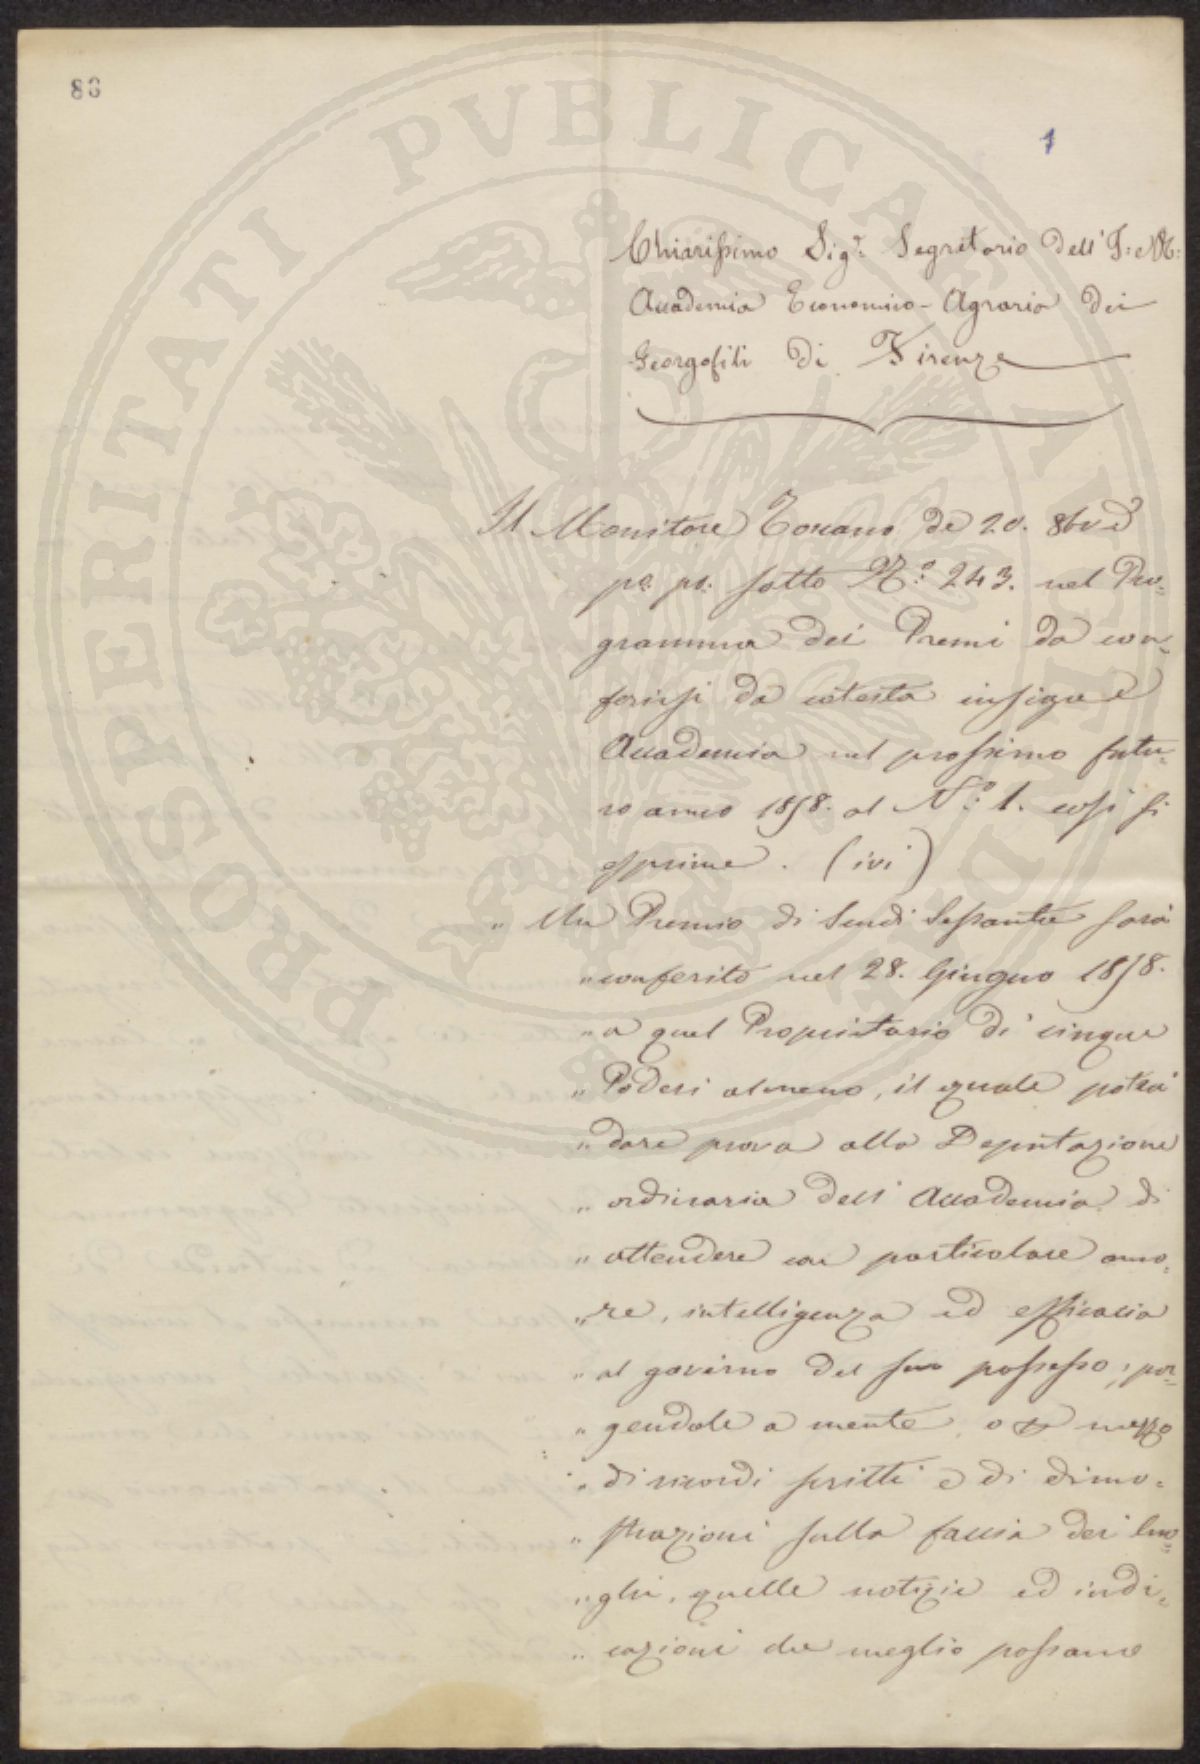 83
1
PROSPERITATI PUBLICAE AUGENDAE
Chiarissimo Sig.r Segretario dell' I: e R:
Accademia Economico-Agraria dei
Georgofili di Firenze
Il Monitore Toscano de 20. 8bre
po. po. sotto N.o 243. nel Pro=
gramma dei Premi da con=
ferirsi da cotesta insigne
Accademia nel prossimo futu=
ro anno 1858. al N.o 1. cosi si
esprime. (ivi)
" Un Premio di Scudi Sessanta sarà
" conferito nel 28. Giugno 1858.
" a quel Proprietario di cinque
" Poderi almeno, il quale potrà
" dare prova alla Deputazione
" ordinaria dell' Accademia di
" attendere con particolare amo=
" re, intelligenza ed efficacia
" al governo del suo possesso, por=
" gendole a mente, o a mezzo
" di ricordi scritti e di dimo=
" strazioni sulla faccia dei luo=
" ghi, quelle notizie ed indi=
" cazioni che meglio possano